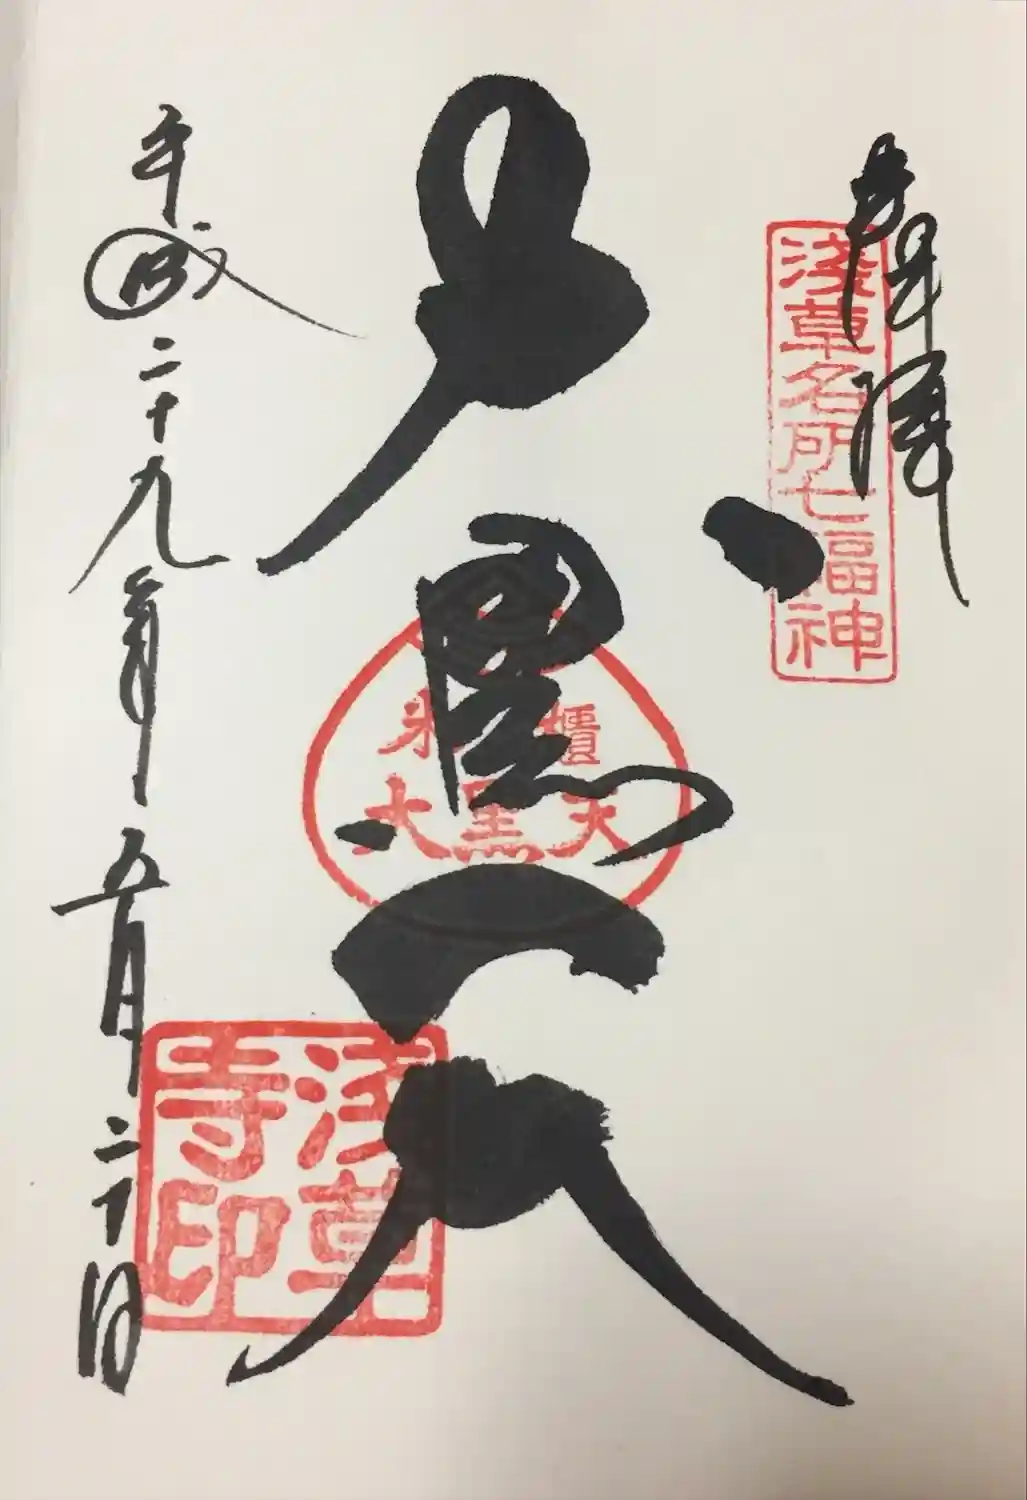 奉拝
浅草名所七福神
大黒天
米櫃
大黒天
平成二十九年五月二十日
浅草
寺印